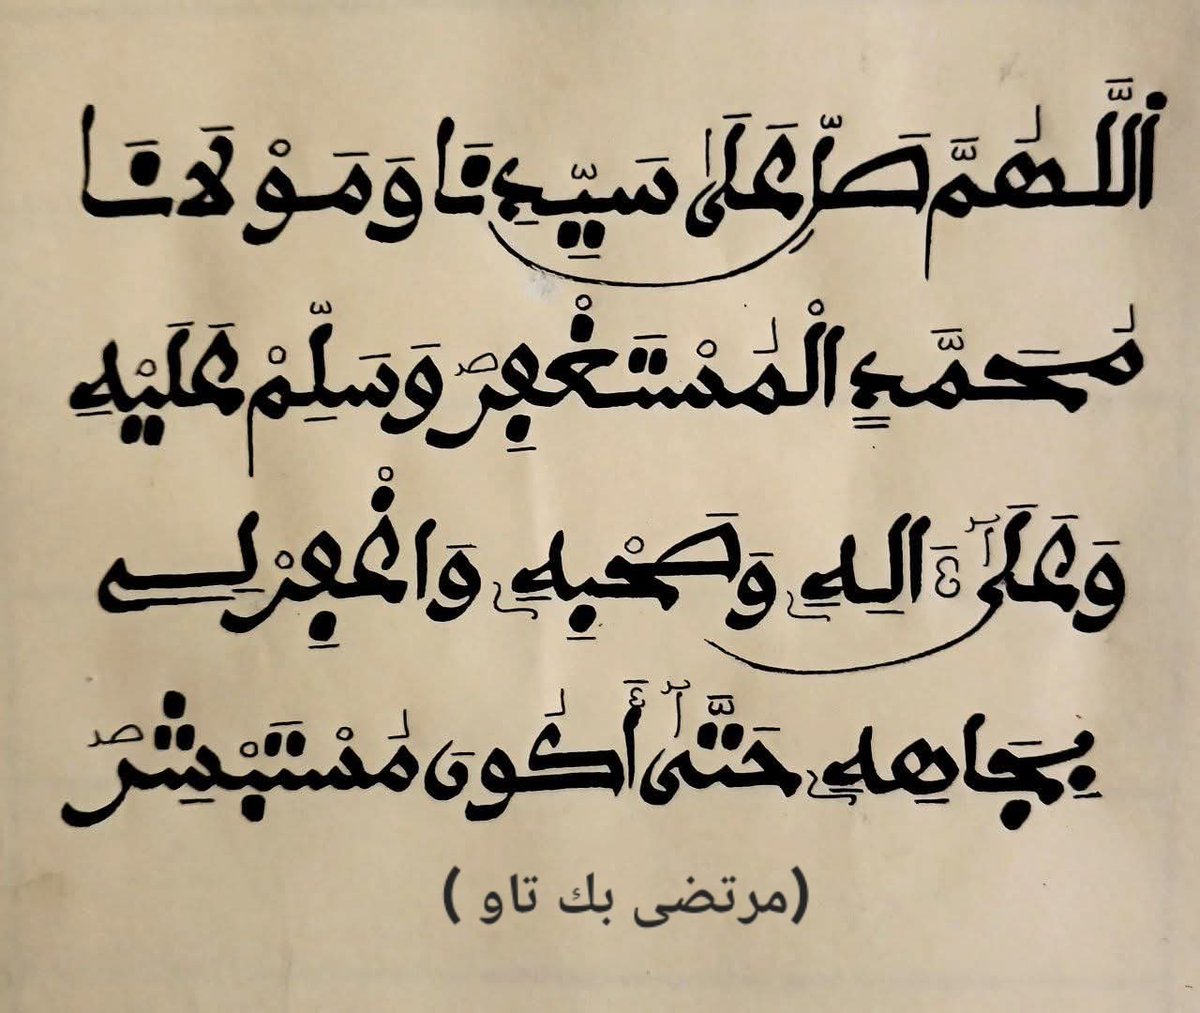 اَللَّهُمَّ صَلِّ عَلَىٰ سَيِّدِنَا وَمَوْلَانَا
مُحَمَّدٍ الْمُسْتَغْفِرْ وَسَلِّمْ عَلَيْهِ
وَعَلَىٰ ءَالِهِ وَصَحْبِهِ وَاغْفِرْ لِي
بِجَاهِهِ حَتَّىٰ أَكُونَ مُسْتَبْشِرْ
(مرتضى بك تاو )